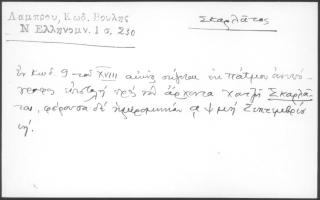 Λαμπρου, Κωδ. Βουλης
Ν Ελληνομν. 1 σ. 230
Σκαρλᾶτος
Ἐν Κωδ. 9 του XVIII αἰῶνος σῴζεται ἐν Πάτμῳ ἀντίγραφος
ἐπιστολὴ πρὸς τὸν ἄρχοντα χατζῆ Σκαρλᾶ-
τον, φέρουσα δὲ ἡμερομηνίαν αψμη Σεπτεμβρίου
ιη'.